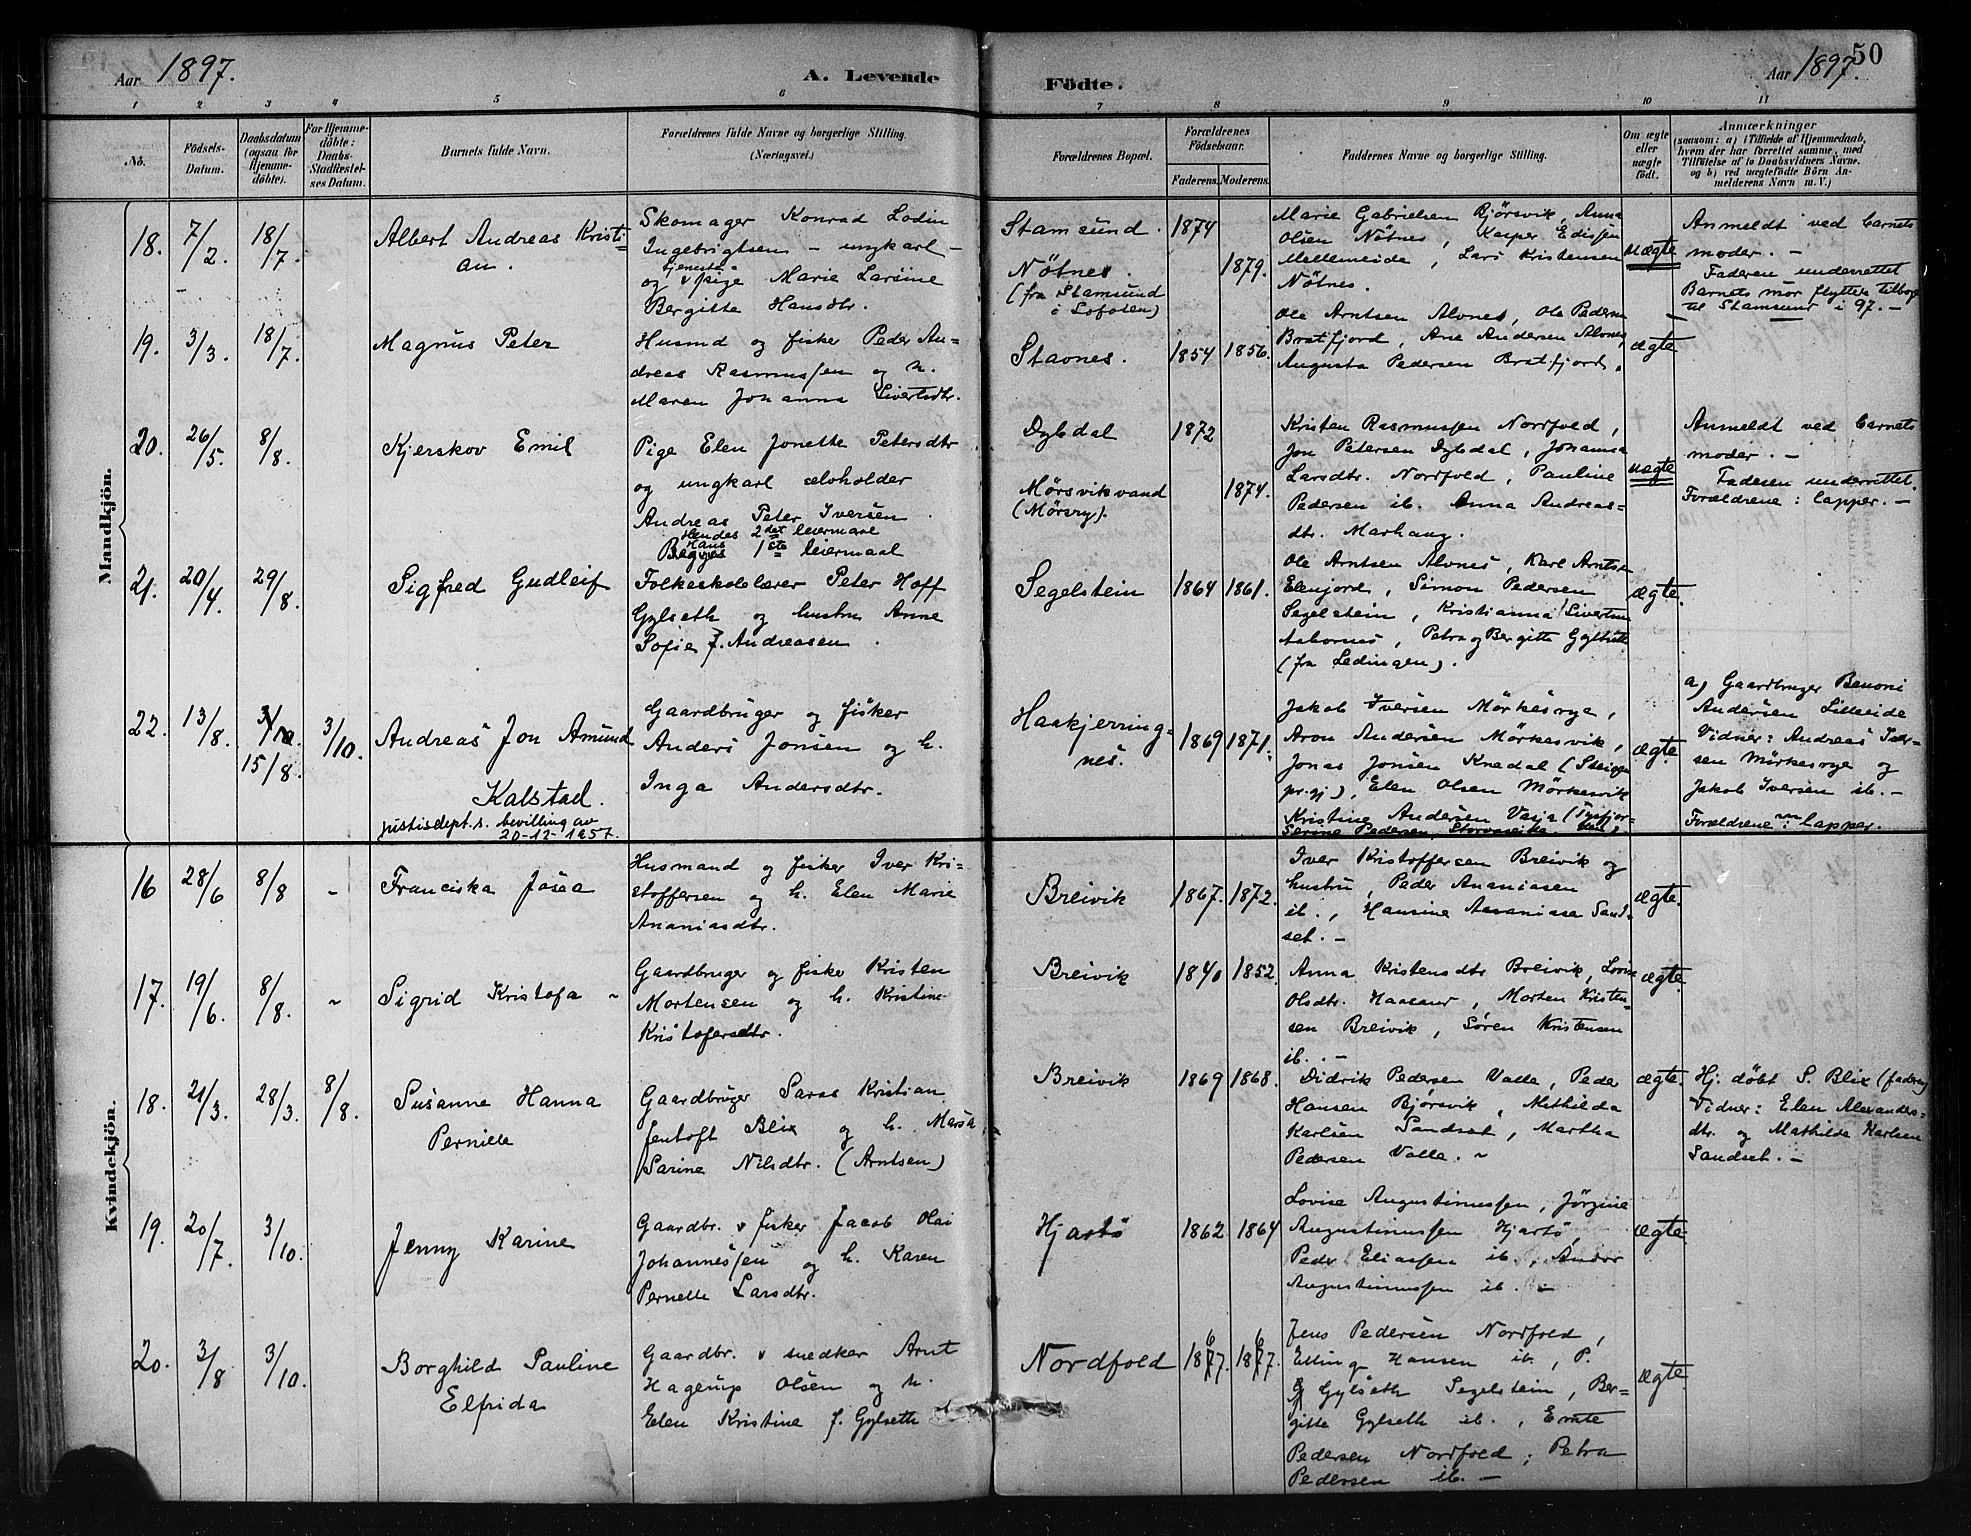 Aar 1897.
A. Levende
Födte.
Aar 1897.
50
1 2 3 4 5 6 7 8 9 10 11
No.
Födsels-
Datum.
Daabsdatum
(ogsaa for
Hjemme-
döbte).
For Hjemme-
döbte:
Daabs-
Stadfæstel-
ses Datum.
Barnets fulde Navn.
Forældrenes fulde Navne og borgerlige Stilling.
(Næringsvei.)
Forældrenes Bopæl.
Forældrenes
Födselsaar.
Faderens. Moderens.
Faddernes Navne og borgerlige Stilling.
Om ægte
eller
uægte
födt.
Anmærkninger
(saasom: a) i Tilfælde af Hjemmedaab,
hvem der har forrettet samme, med
Tilföielse af to Daabsvidners Navne.
og b) ved uægtefödte Börn An-
melderens Navn m. V.)
Mandkjön.
18.
7/2.
18/7.
Albert Andreas Kristi-
an.
Skomager Konrad Lodin
Ingebrigtsen – ungkarl –
og tjeneste-
pige Marie Lariine
Bergitte Hansdtr.
Stamsund.
Nötnes.
(fra Stamsund
i Lofoten)
1874
1879.
Marie Gabrielsen Bjørsvik, Anna
Olsen Nötnes, Kasper Edissen
Mellemeide, Lars Kristensen
Nötnes.
uægte
Anmeldt ved barnets
moder. –
Faderen underrettet
Barnets mor flyttede tilbage
til Stamsund i 97. –
19.
3/3.
18/7.
Magnus Peter
Husmd og fisker Peder An-
dreas Rasmussen og h.
Maren Johanna Sivertsdtr.
Stavnes.
1854 1856.
Ole Arntsen Alvnes, Ole Pedersen
Bratfjord, Ane Andersen Alvnes,
Augusta Pedersen Bratfjord.
ægte
20.
26/5.
8/8.
Kjerskov Emil
Pige Elen Jonette Petersdtr
og ungkarl selvholder
Andreas Peter Iversen.
Hendes 2det leiermaal
Hans 1ste leiermaal
Dybdal
Mørsvikvand
(Mørsry).
1872
1874.
Kristen Rasmussen Nordfold,
Jon Petersen Dybdal, Johanna
Larsdtr. Nordfold, Pauline
Pedersen ib. Anna Andreas-
dtr. Marhaug.
uægte
Anmeldt ved barnets
moder. –
Faderen underrettet.
Forældrene: lapper. –
21.
20/4.
29/8.
Sigfred Gudleif
Folkeskolelærer Peter Hoff
Gylseth og hustru Anne
Sofie f. Andreasen.
Segelstein
1864 1861.
Ole Arntsen Alvnes, Karl Arntsen
Elenjord, Simon Pedersen
Segelstein, Kristianna Sivertsen
Aabornes, Petra og Bergitte Gylseth
(fra Lødingen).
ægte.
22.
13/8.
3/10.
15/8.
3/10.
Andreas Jon Amund
Kalstad.
justisdept.s. bevilling av
20-12-1957.
Gaardbruger og fisker
Anders Jonsen og h.
Inga Andersdtr.
Haakjerring-
nes.
1869 1871.
Jakob Iversen Mörkesrye,
Aron Andersen Mörkesvik,
Jonas Jonsen Knedal (Steigen
pr.gj), Elen Olsen Mörkesvik
Kristine Andersen Vasja (Tysfjor-
Serine Pedersen, Storvaseide
ægte.
a) Gaardbruger Benoni
Andersen Lilleeide
Vidner: Andreas Iver-
sen Mörkesrye og
Jakob Iversen ib. –
Forældrene: lapper.
Kvindekjön.
16
28/6
8/8
–
Franciska Josea
Husmand og fisker Iver Kri-
stoffersen og h. Elen Marie
Ananiasdtr.
Breivik
1867. 1872.
Iver Kristoffersen Breivik og
hustru, Peder Ananiasen
ib., Hansine Ananiasen Sand-
set. –
ægte.
17.
19/6.
8/8.
Sigrid Kristofa
Gaardbruger og fisker Kristen
Mortensen og h. Kristine
Kristofersdtr.
Breivik
1840 1852.
Anna Kristensdtr Breivik, Lovise
Olsdtr. Haasand, Morten Kristen-
sen Breivik, Sören Kristensen
ib. –
ægte.
18.
21/3.
28/3.
8/8.
Susanne Hanna
Pernille
Gaardbruger Saras Kristian
Jentoft Blix og h. Marsa
Sarine Nilsdtr. (Arntsen)
Breivik
1869 1868.
Didrik Pedersen Valle, Peder
Hansen Bjørsvik, Mathilda
Karlsen Sandset, Martha
Pedersen Valle.
ægte.
Hj. døbt S. Blix (faderen)
Vidner: Elen Alexanders-
dtr. og Mathilde Karlsen
Sandset. –
19.
20/7.
3/10.
Jenny Karine
Gaardbr. & fisker Jacob Olai
Johannessen og h. Karen
Pernelle Larsdtr.
Hjartö
1862 1864
Lovise Augustinussen, Jørgine
Augustinussen Hjartö,
Peder Eliassen ib., Andor
Augustinussen ib. –
ægte.
20.
3/8
3/10.
Borghild Pauline
Elfrida
Gaardbr. & snedker Arnt
Hagerup Olsen og h.
Elen Kristine f. Gylseth
Nordfold
1867. 1867.
Jens Pedersen Nordfold,
Elling Hansen ib., P.
Gylseth Segelstein, Ber-
gitte Gylseth ib., Emte
Pedersen Nordfold, Petra
Pedersen ib. –
ægte.